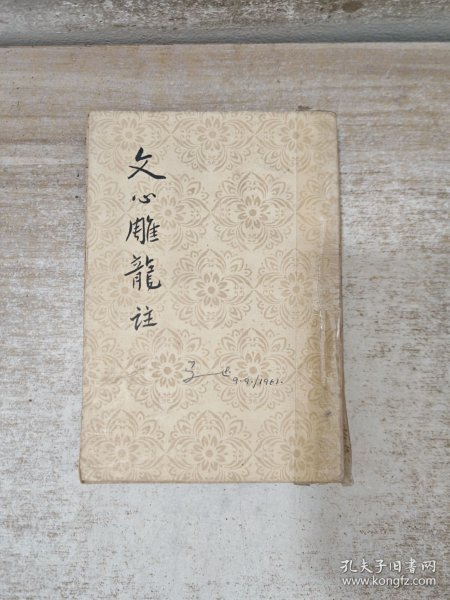 文心雕龍註
9.9./1961.
孔夫子旧书网
www.kongfz.com